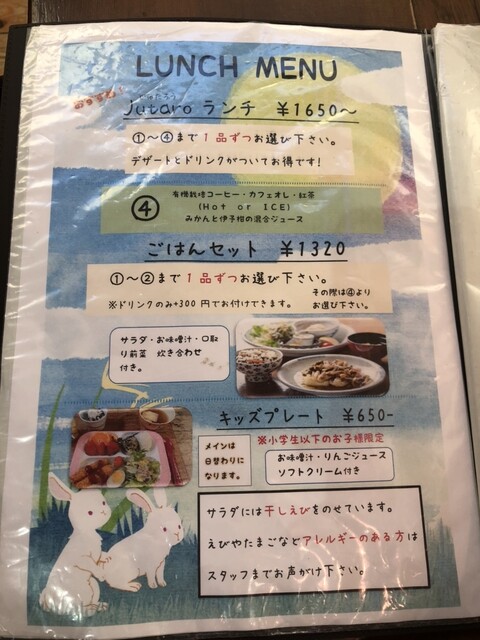 LUNCH MENU
じゅたろう
Jutaro ランチ ¥1650〜
①〜④まで１品ずつお選び下さい。
デザートとドリンクがついてお得です!
④
有機栽培コーヒー・カフェオレ・紅茶
(Hot or ICE)
みかんと伊予柑の混合ジュース
ごはんセット ¥1320
①〜②まで１品ずつお選び下さい。
※ドリンクのみ+300 円でお付けできます。
その際は④より
お選び下さい。
サラダ・お味噌汁・口取
り前菜 炊き合わせ
付き。
キッズプレート ¥650-
※小学生以下のお子様限定
メインは
日替わりに
なります。
お味噌汁・りんごジュース
ソフトクリーム付き
サラダには干しえびをのせています。
えびやたまごなどアレルギーのある方は
スタッフまでお声がけ下さい。